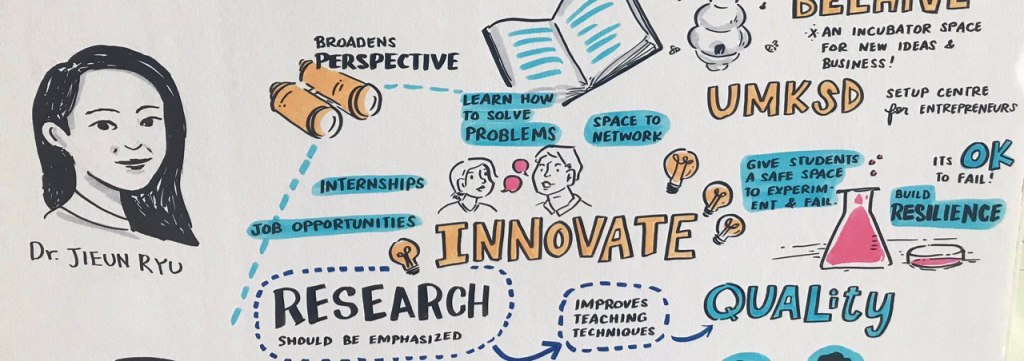 Dr. JIEUN RYU
BROADENS
PERSPECTIVE
LEARN HOW
TO SOLVE
PROBLEMS
SPACE TO
NETWORK
INTERNSHIPS
JOB OPPORTUNITIES
INNOVATE
RESEARCH
SHOULD BE EMPHASIZED
IMPROVES
TEACHING
TECHNIQUES
QUALity
BEEHIVE
* AN INCUBATOR SPACE
FOR NEW IDEAS &
BUSINESS!
UMKSD
SETUP CENTRE
for ENTREPRENEURS
GIVE STUDENTS
A SAFE SPACE
TO EXPERIM-
ENT & FAIL.
ITS OK
TO FAIL!
BUILD
RESILIENCE